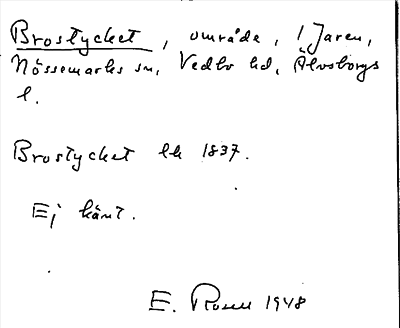 Brostycket, område, i Jaren,
Nössemarks sn, Vedbo hd, Älvsborgs
l.
Brostycket lh 1837.
Ej känt.
E. Rosell 1948